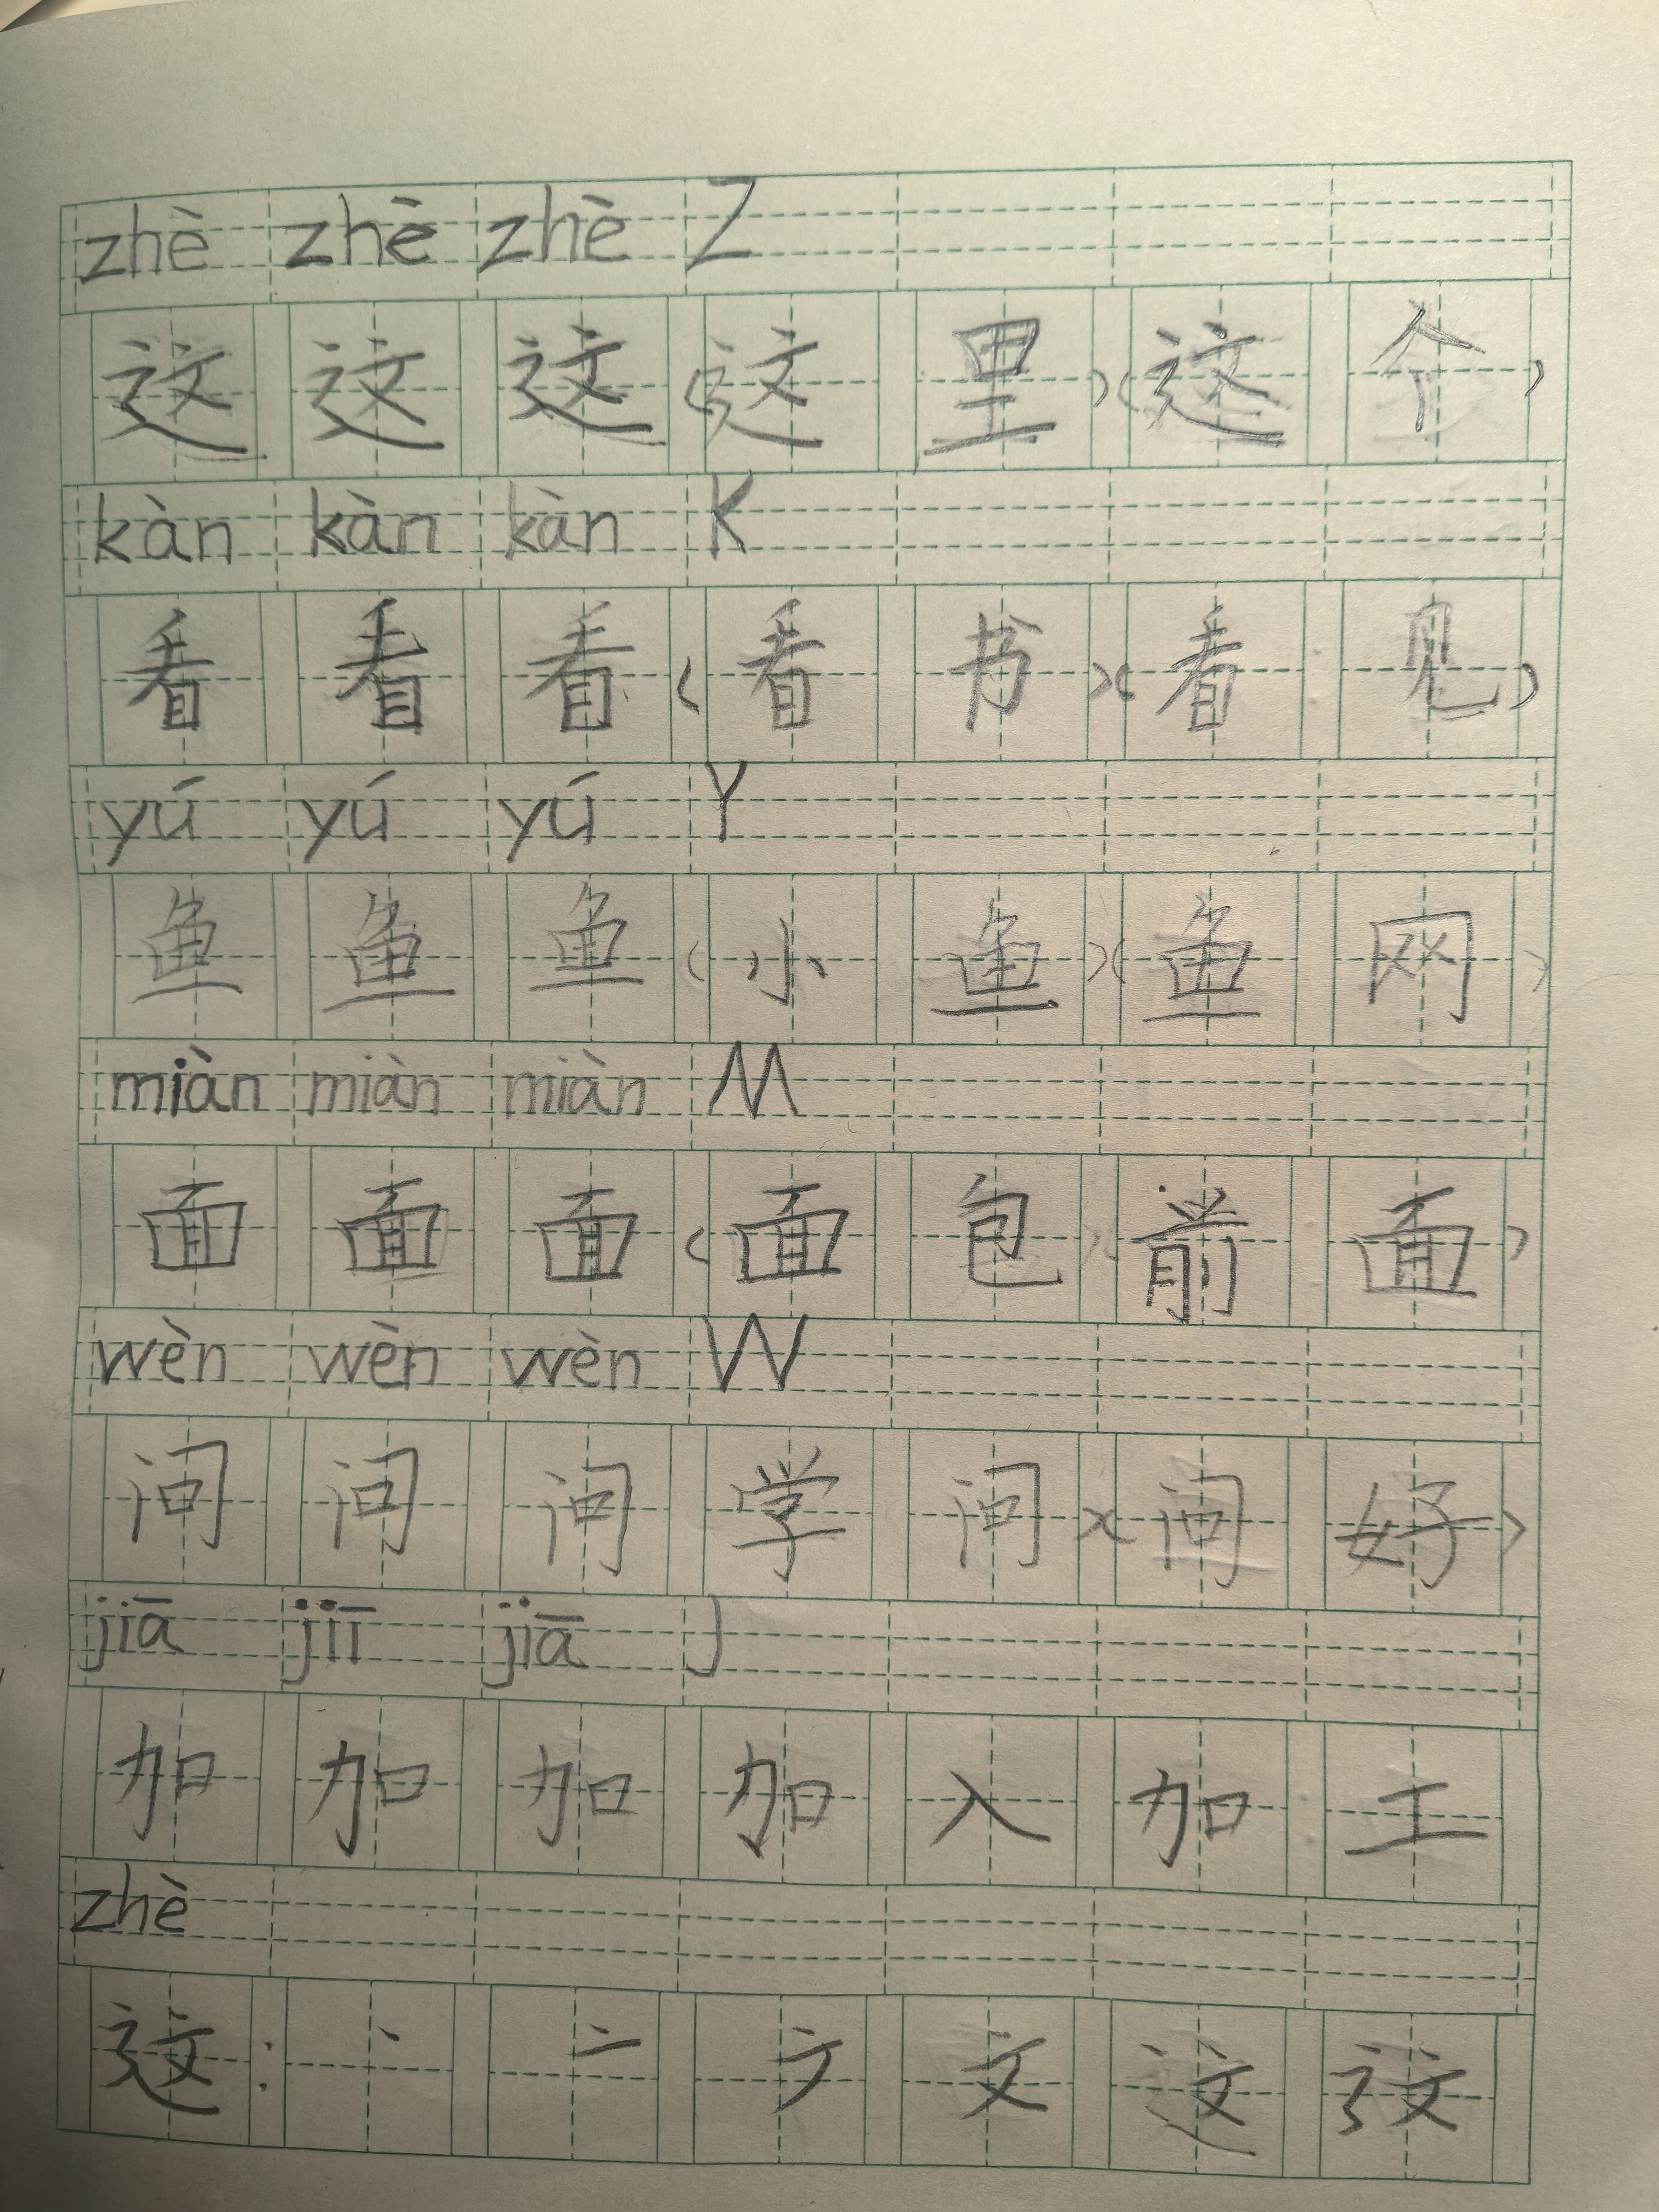 zhè zhè zhè Z
这 这 这 (这 里)(这 个)
kàn kàn kàn K
看 看 看 (看 书)(看 见)
yú yú yú Y
鱼 鱼 鱼 (小 鱼)(鱼 网)
miàn miàn miàn M
面 面 面 (面 包)(前 面)
wèn wèn wèn W
问 问 问 学 问)(问 好)
jiā jiī jiā J
加 加 加 加 入 加 工
zhè
这: 丶 亠 文